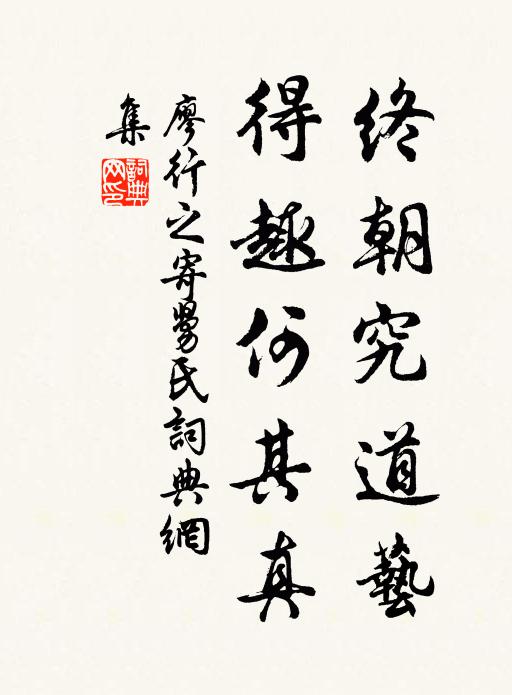 終朝究道藝
得趣何其真
廖行之寄舅氏詞典網
集
詞典網印